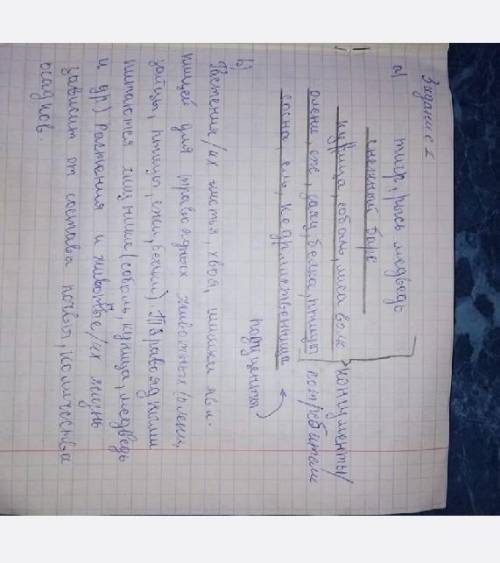 Задание 2
а) тигр, рысь медведь
снежный барс
куница, соболь, лиса волк консументы/
олени, еж, заяц, белка, птицы потребители
сосна, ель, кедр лиственница
продуценты
b)
Растения/их листья, хвоя, шишки явл.
пищей для травоядных животных (олени,
зайцы, птицы, ежи, белки). Травоядными
питаются хищники (соболь, куница, медведь
и др) Растения и животные/их жизнь
зависит от состава почвы, количества
осадков.